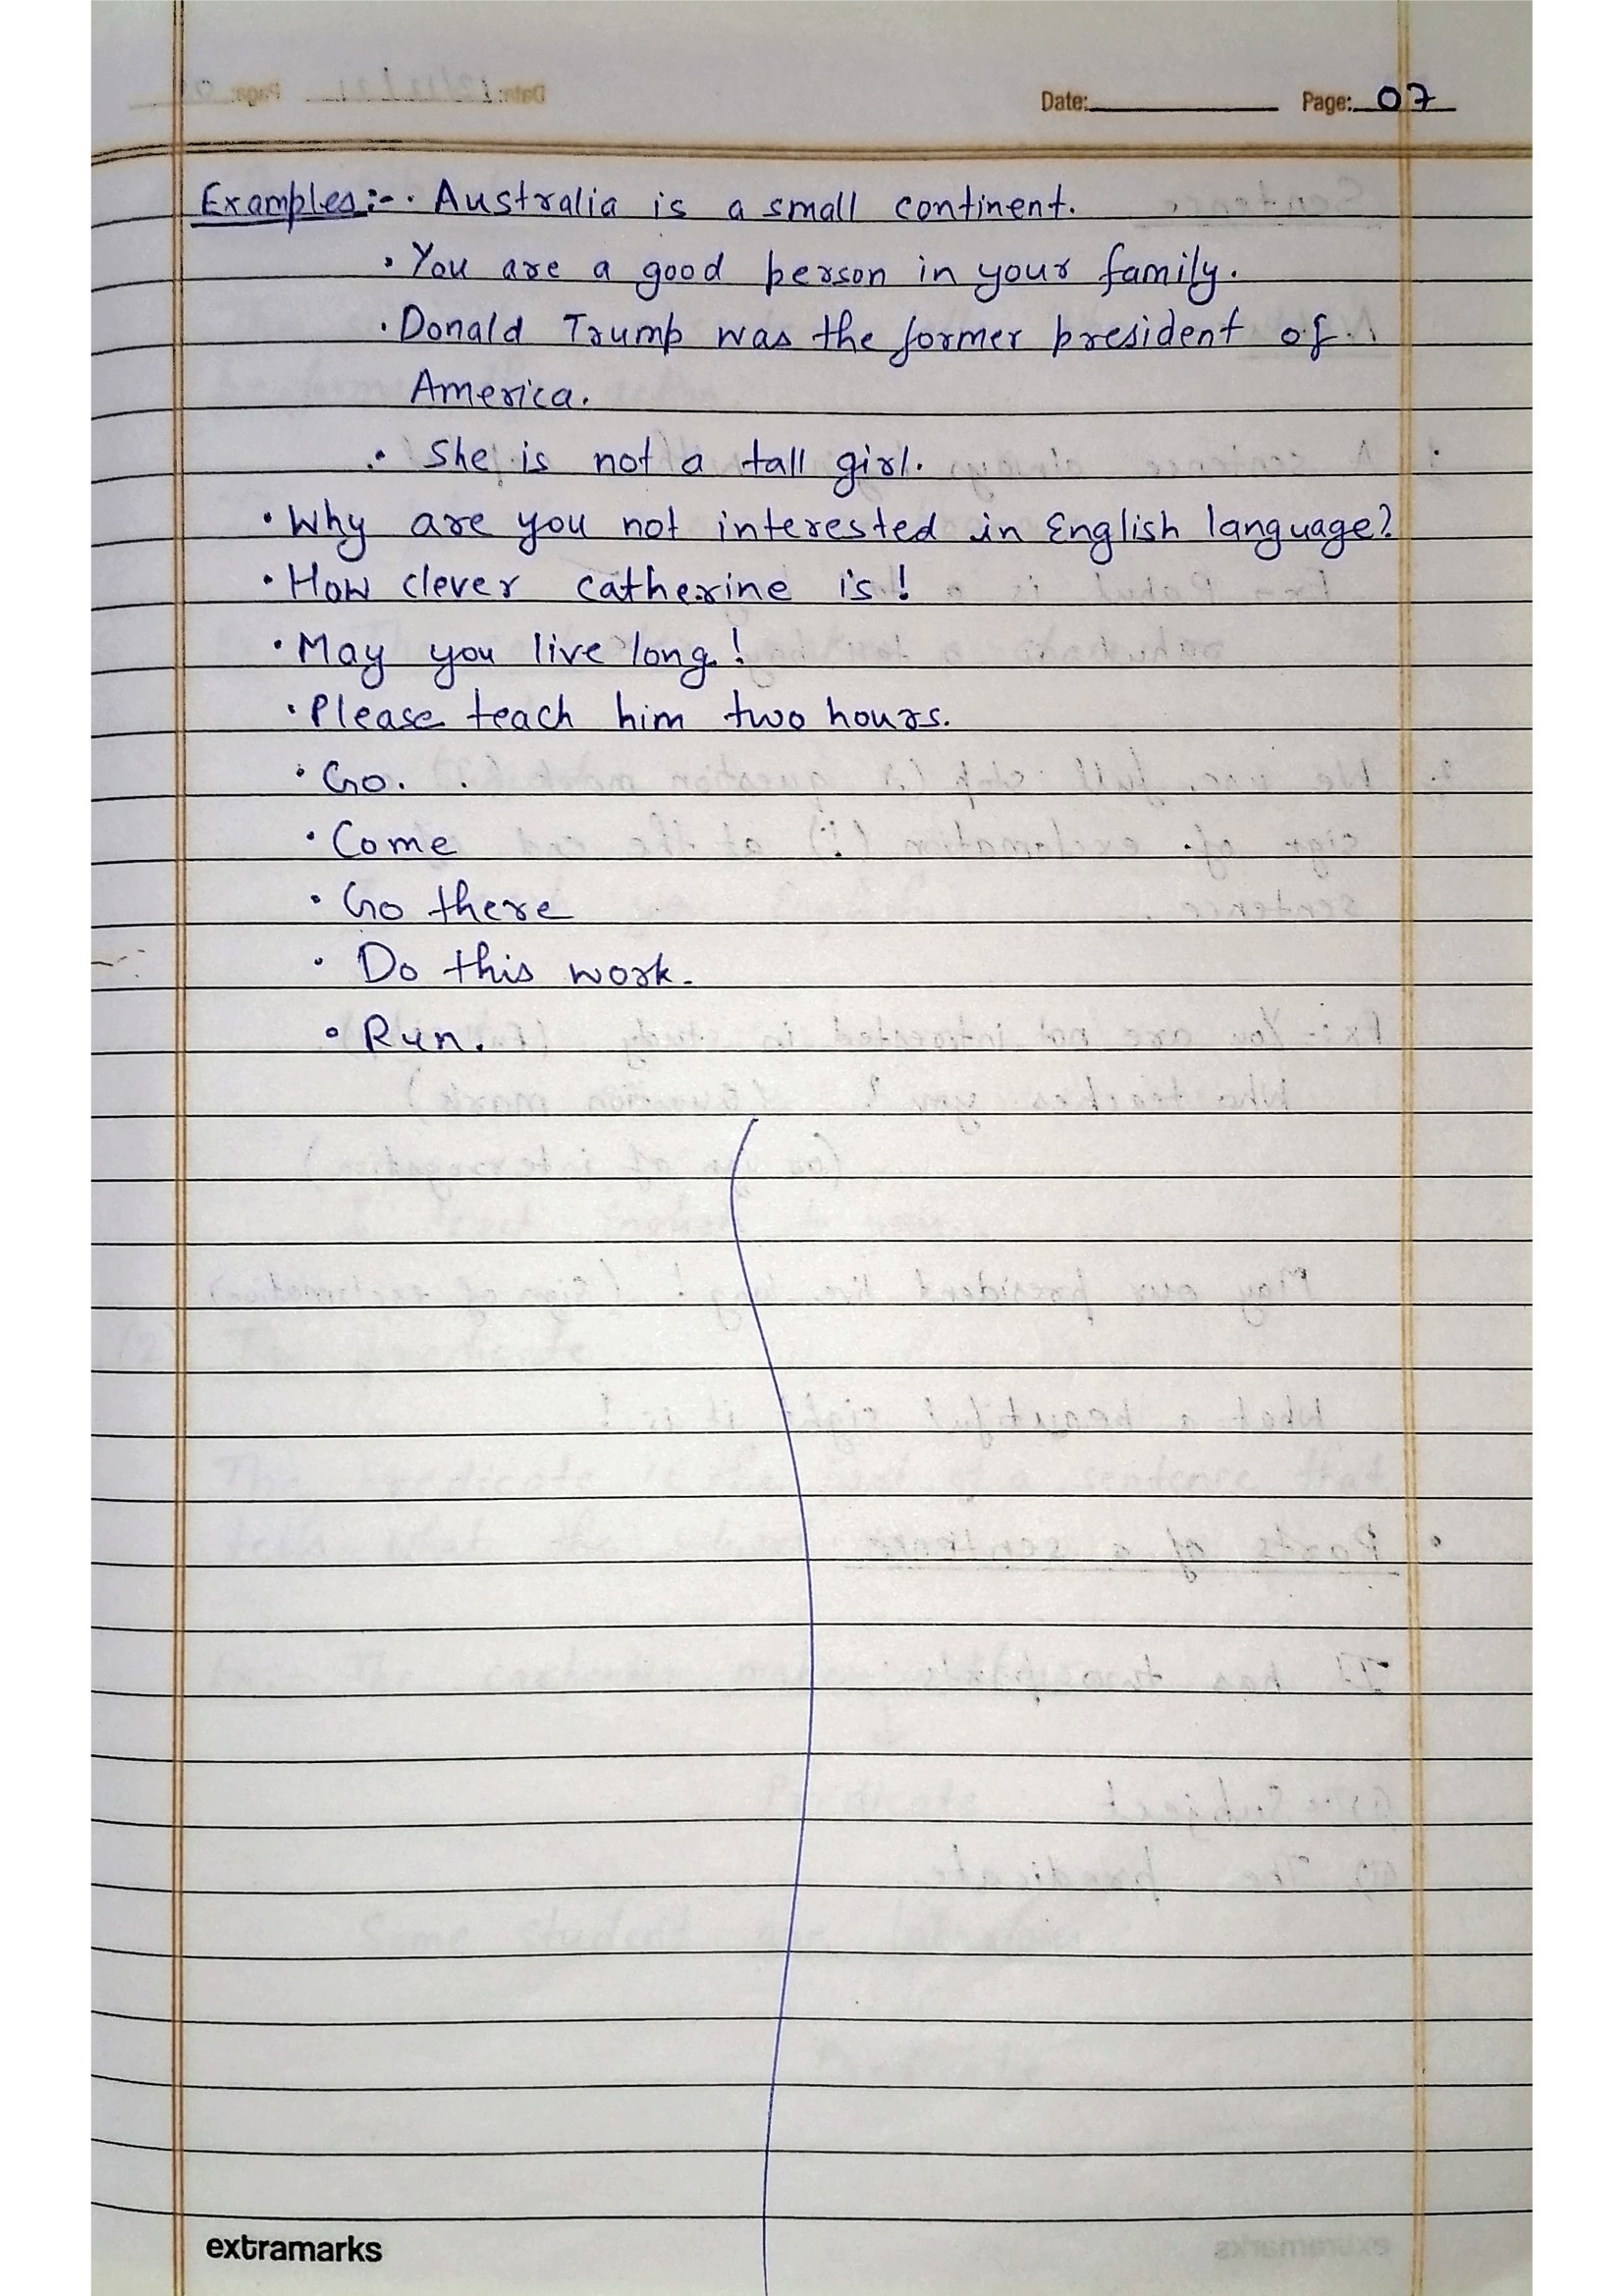 Date: Page: 07
Examples:- • Australia is a small continent.
• You are a good person in your family.
• Donald Trump was the former president of
America.
• She is not a tall girl.
• Why are you not interested in English language?
• How clever catherine is!
• May you live long!
• Please teach him two hours.
• Go.
• Come
• Go there
• Do this work.
• Run.
extramarks